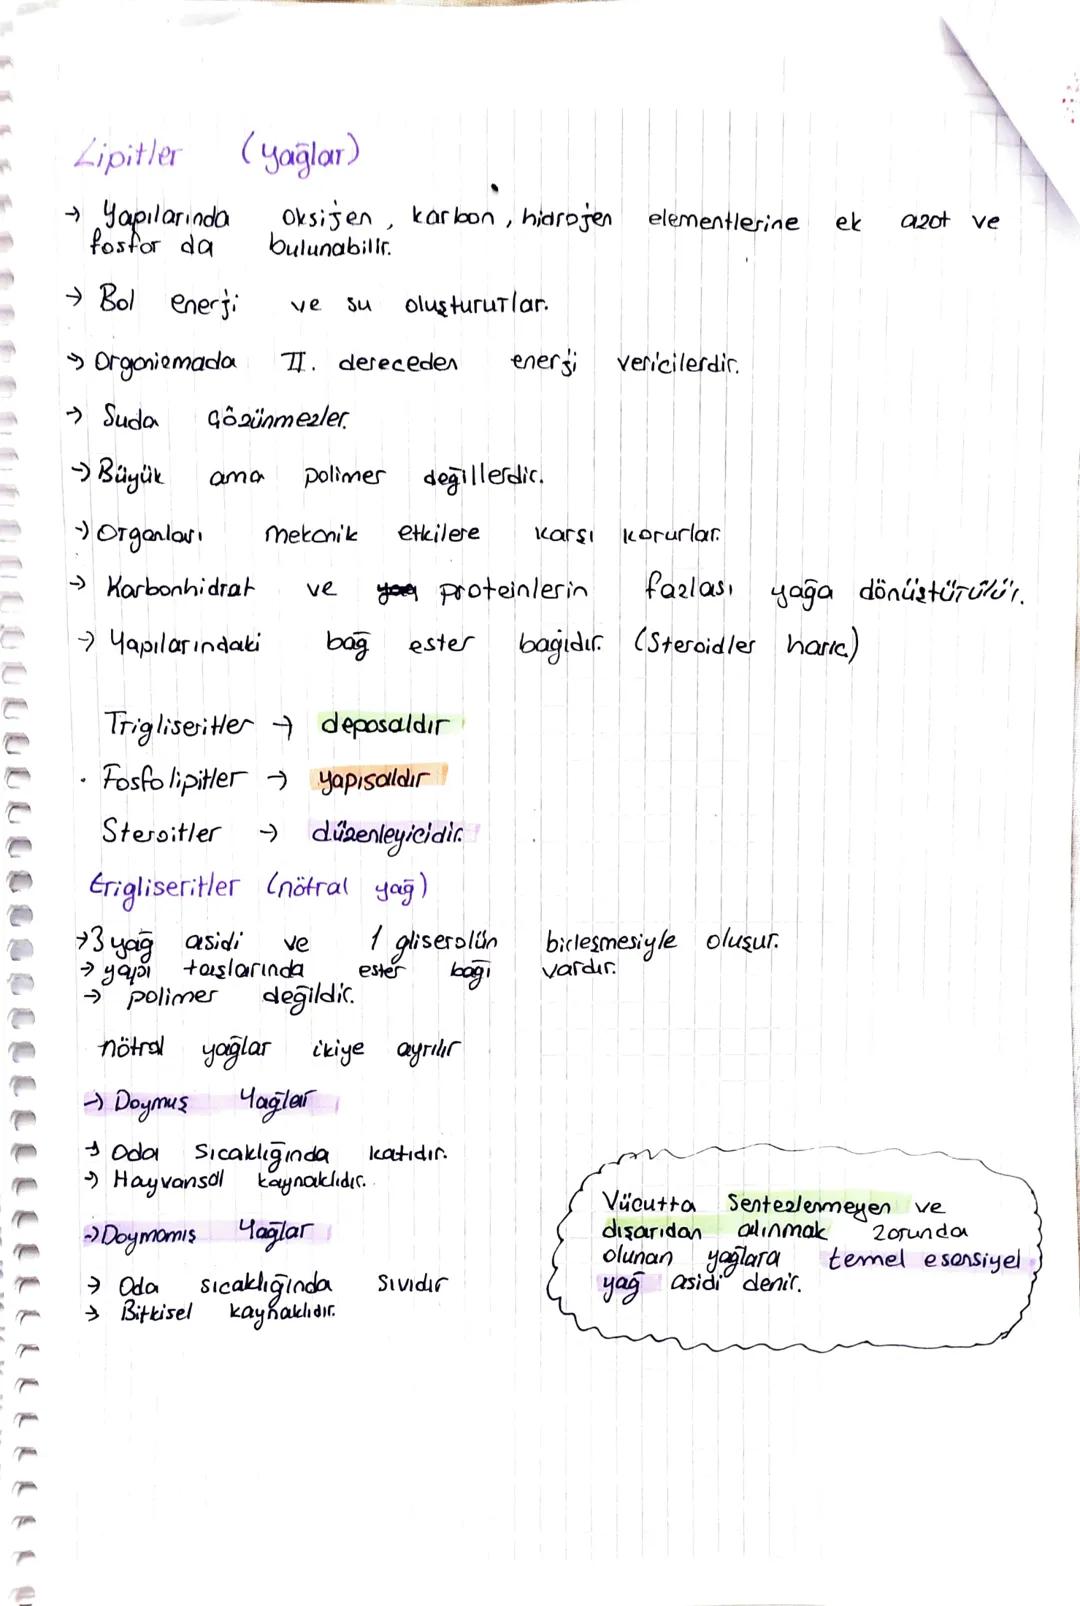 Lipitler (yağlar)
→ Yapılarında oksijen, karbon, hidrojen elementlerine ek azot ve
fosfor da bulunabilir.
→ Bol enerji ve su oluştururlar.
→ Organiemada II. dereceden enerji vericilerdir.
→ Suda Çözünmezler.
→ Büyük ama polimer değillerdir.
→ Organları mekanik etkilere karşı korurlar.
→ Karbonhidrat ve proteinlerin fazlası yağa dönüştürülür.
→ Yapılarındaki bağ ester bağıdır. (Steroidler hariç)
Trigliseritler → deposaldır
· Fosfolipitler → yapısaldır
Steroitler → düzenleyicidir.
trigliseritler (nötral yağ)
→ 3 yağ asidi ve 1 gliserolün birleşmesiyle oluşur.
→ yapı taşlarında ester bağı vardır.
→ polimer değildir.
nötral yağlar ikiye ayrılır
→ Doymuş Yağlar
→ Oda Sıcaklığında katıdır.
→ Hayvansal kaynaklıdır.
→ Doymamış Yağlar
→ Oda sıcaklığında sıvıdır
→ Bitkisel kaynaklıdır.
Vücutta Sentezlenmeyen ve
dışarıdan alınmak zorunda
olunan yağlara temel esansiyel
yağ asidi denir.